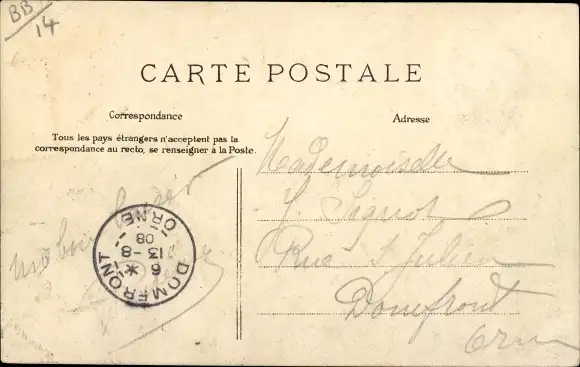 BB
14
CARTE POSTALE
Correspondance
Adresse
Tous les pays étrangers n'acceptent pas la
correspondance au recto, se renseigner à la Poste.
Mademoiselle
Rue St Julien
Domfront
Orne
DOMFRONT
6 *
13-8
08
ORNE